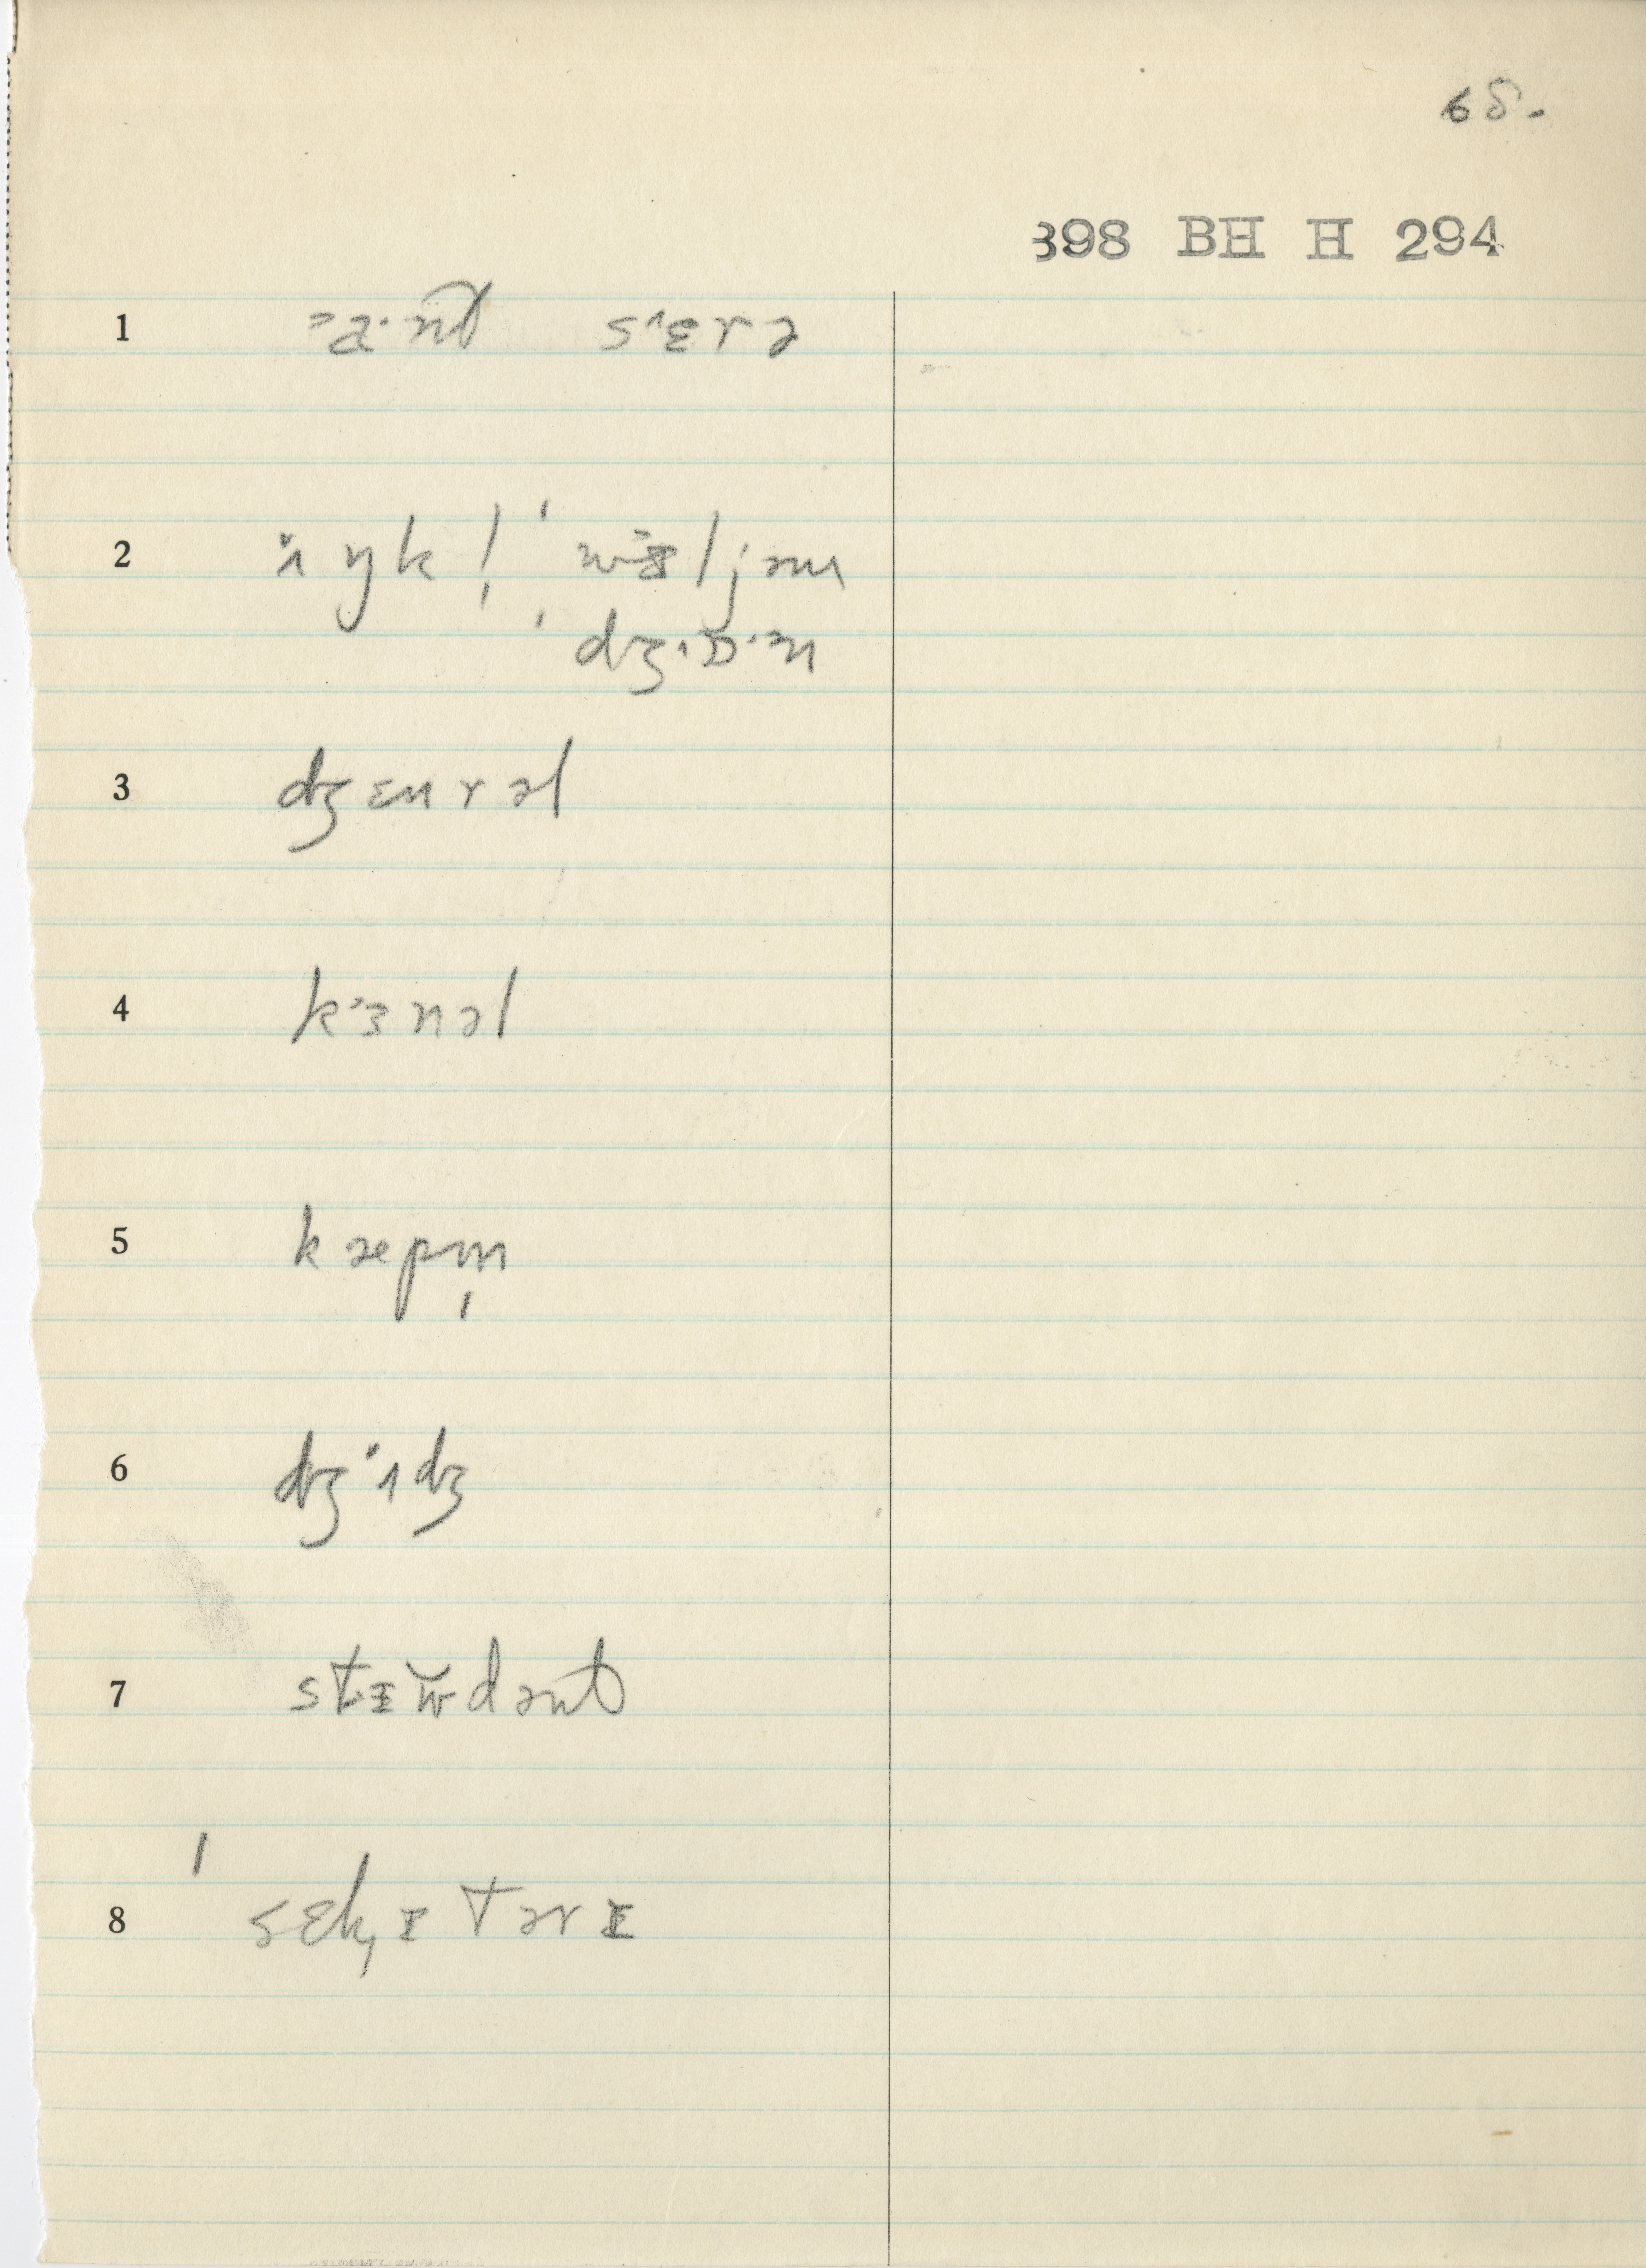 68.
398 BH H 294
1 a·nt sɛrə
2 ʌŋkl̩ ˈwɪljəm
ˈdʒɒ·n
3 dʒɛnrəl
4 kɜnəl
5 kæpm̩
6 dʒʌdʒ
7 stɪw̆dənt
8 ˈsɛk̡ɪtərɪ